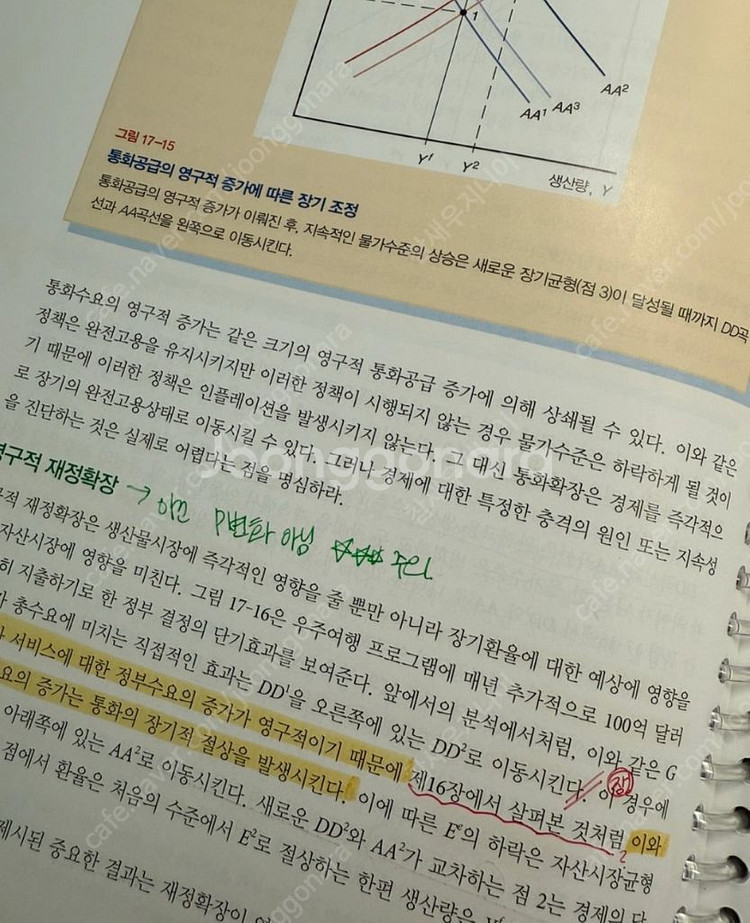 1
AA²
AA³
AA¹
Y¹ Y²
생산량, Y
그림 17-15
통화공급의 영구적 증가에 따른 장기 조정
통화공급의 영구적 증가가 이뤄진 후, 지속적인 물가수준의 상승은 새로운 장기균형(점 3)이 달성될 때까지 DD곡
선과 AA곡선을 왼쪽으로 이동시킨다.
통화수요의 영구적 증가는 같은 크기의 영구적 통화공급 증가에 의해 상쇄될 수 있다. 이와 같은
정책은 완전고용을 유지시키지만 이러한 정책이 시행되지 않는 경우 물가수준은 하락하게 될 것이
기 때문에 이러한 정책은 인플레이션을 발생시키지 않는다. 그 대신 통화확장은 경제를 즉각적으
로 장기의 완전고용상태로 이동시킬 수 있다. 그러나 경제에 대한 특정한 충격의 원인 또는 지속성
을 진단하는 것은 실제로 어렵다는 점을 명심하라.
영구적 재정확장 → 이건 P변화 아님 ☆☆☆ 주의
구적 재정확장은 생산물시장에 즉각적인 영향을 줄 뿐만 아니라 장기환율에 대한 예상에 영향을
자산시장에 영향을 미친다. 그림 17-16은 우주여행 프로그램에 매년 추가적으로 100억 달러
히 지출하기로 한 정부 결정의 단기효과를 보여준다. 앞에서의 분석에서처럼, 이와 같은 G
가 총수요에 미치는 직접적인 효과는 DD¹을 오른쪽에 있는 DD²로 이동시킨다. 이 경우에
서비스에 대한 정부수요의 증가가 영구적이기 때문에 제16장에서 살펴본 것처럼 이와
요의 증가는 통화의 장기적 절상을 발생시킨다. 이에 따른 Eᵉ의 하락은 자산시장균형
아래쪽에 있는 AA²로 이동시킨다. 새로운 DD²와 AA²가 교차하는 점 2는 경제의 단
점에서 환율은 처음의 수준에서 E²로 절상하는 한편 생산량은
제시된 중요한 결과는 재정확장이
Joonggonara
cafe.naver.com/joonggonara